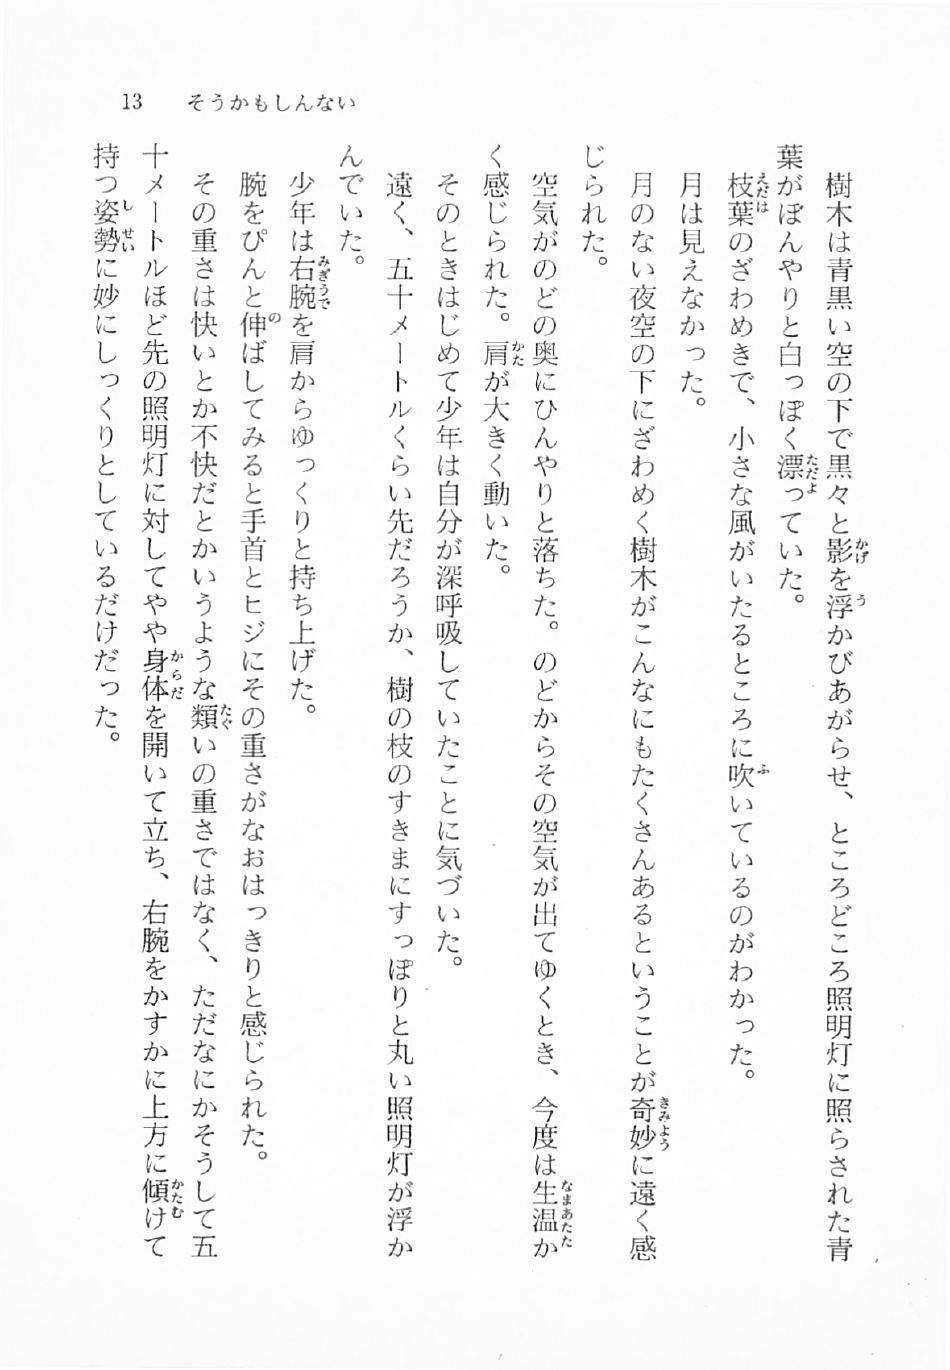 13　そうかもしんない
樹木は青黒い空の下で黒々と影を浮かびあがらせ、ところどころ照明灯に照らされた青
葉がぼんやりと白っぽく漂っていた。
枝葉のざわめきで、小さな風がいたるところに吹いているのがわかった。
月は見えなかった。
月のない夜空の下にざわめく樹木がこんなにもたくさんあるということが奇妙に遠く感
じられた。
空気がのどの奥にひんやりと落ちた。のどからその空気が出てゆくとき、今度は生温か
く感じられた。肩が大きく動いた。
そのときはじめて少年は自分が深呼吸していたことに気づいた。
遠く、五十メートルくらい先だろうか、樹の枝のすきまにすっぽりと丸い照明灯が浮か
んでいた。
少年は右腕を肩からゆっくりと持ち上げた。
腕をぴんと伸ばしてみると手首とヒジにその重さがなおはっきりと感じられた。
その重さは快いとか不快だとかいうような類いの重さではなく、ただなにかそうして五
十メートルほど先の照明灯に対してやや身体を開いて立ち、右腕をかすかに上方に傾けて
持つ姿勢に妙にしっくりとしているだけだった。